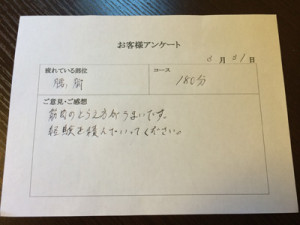 お客様アンケート
月 21日
疲れている部位
コース
腰、
180分
ご意見・ご感想
筋肉のとらえ方がうまいです。
経験を積んでいってください。